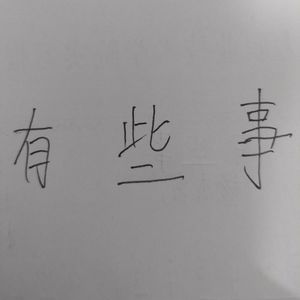 有些事